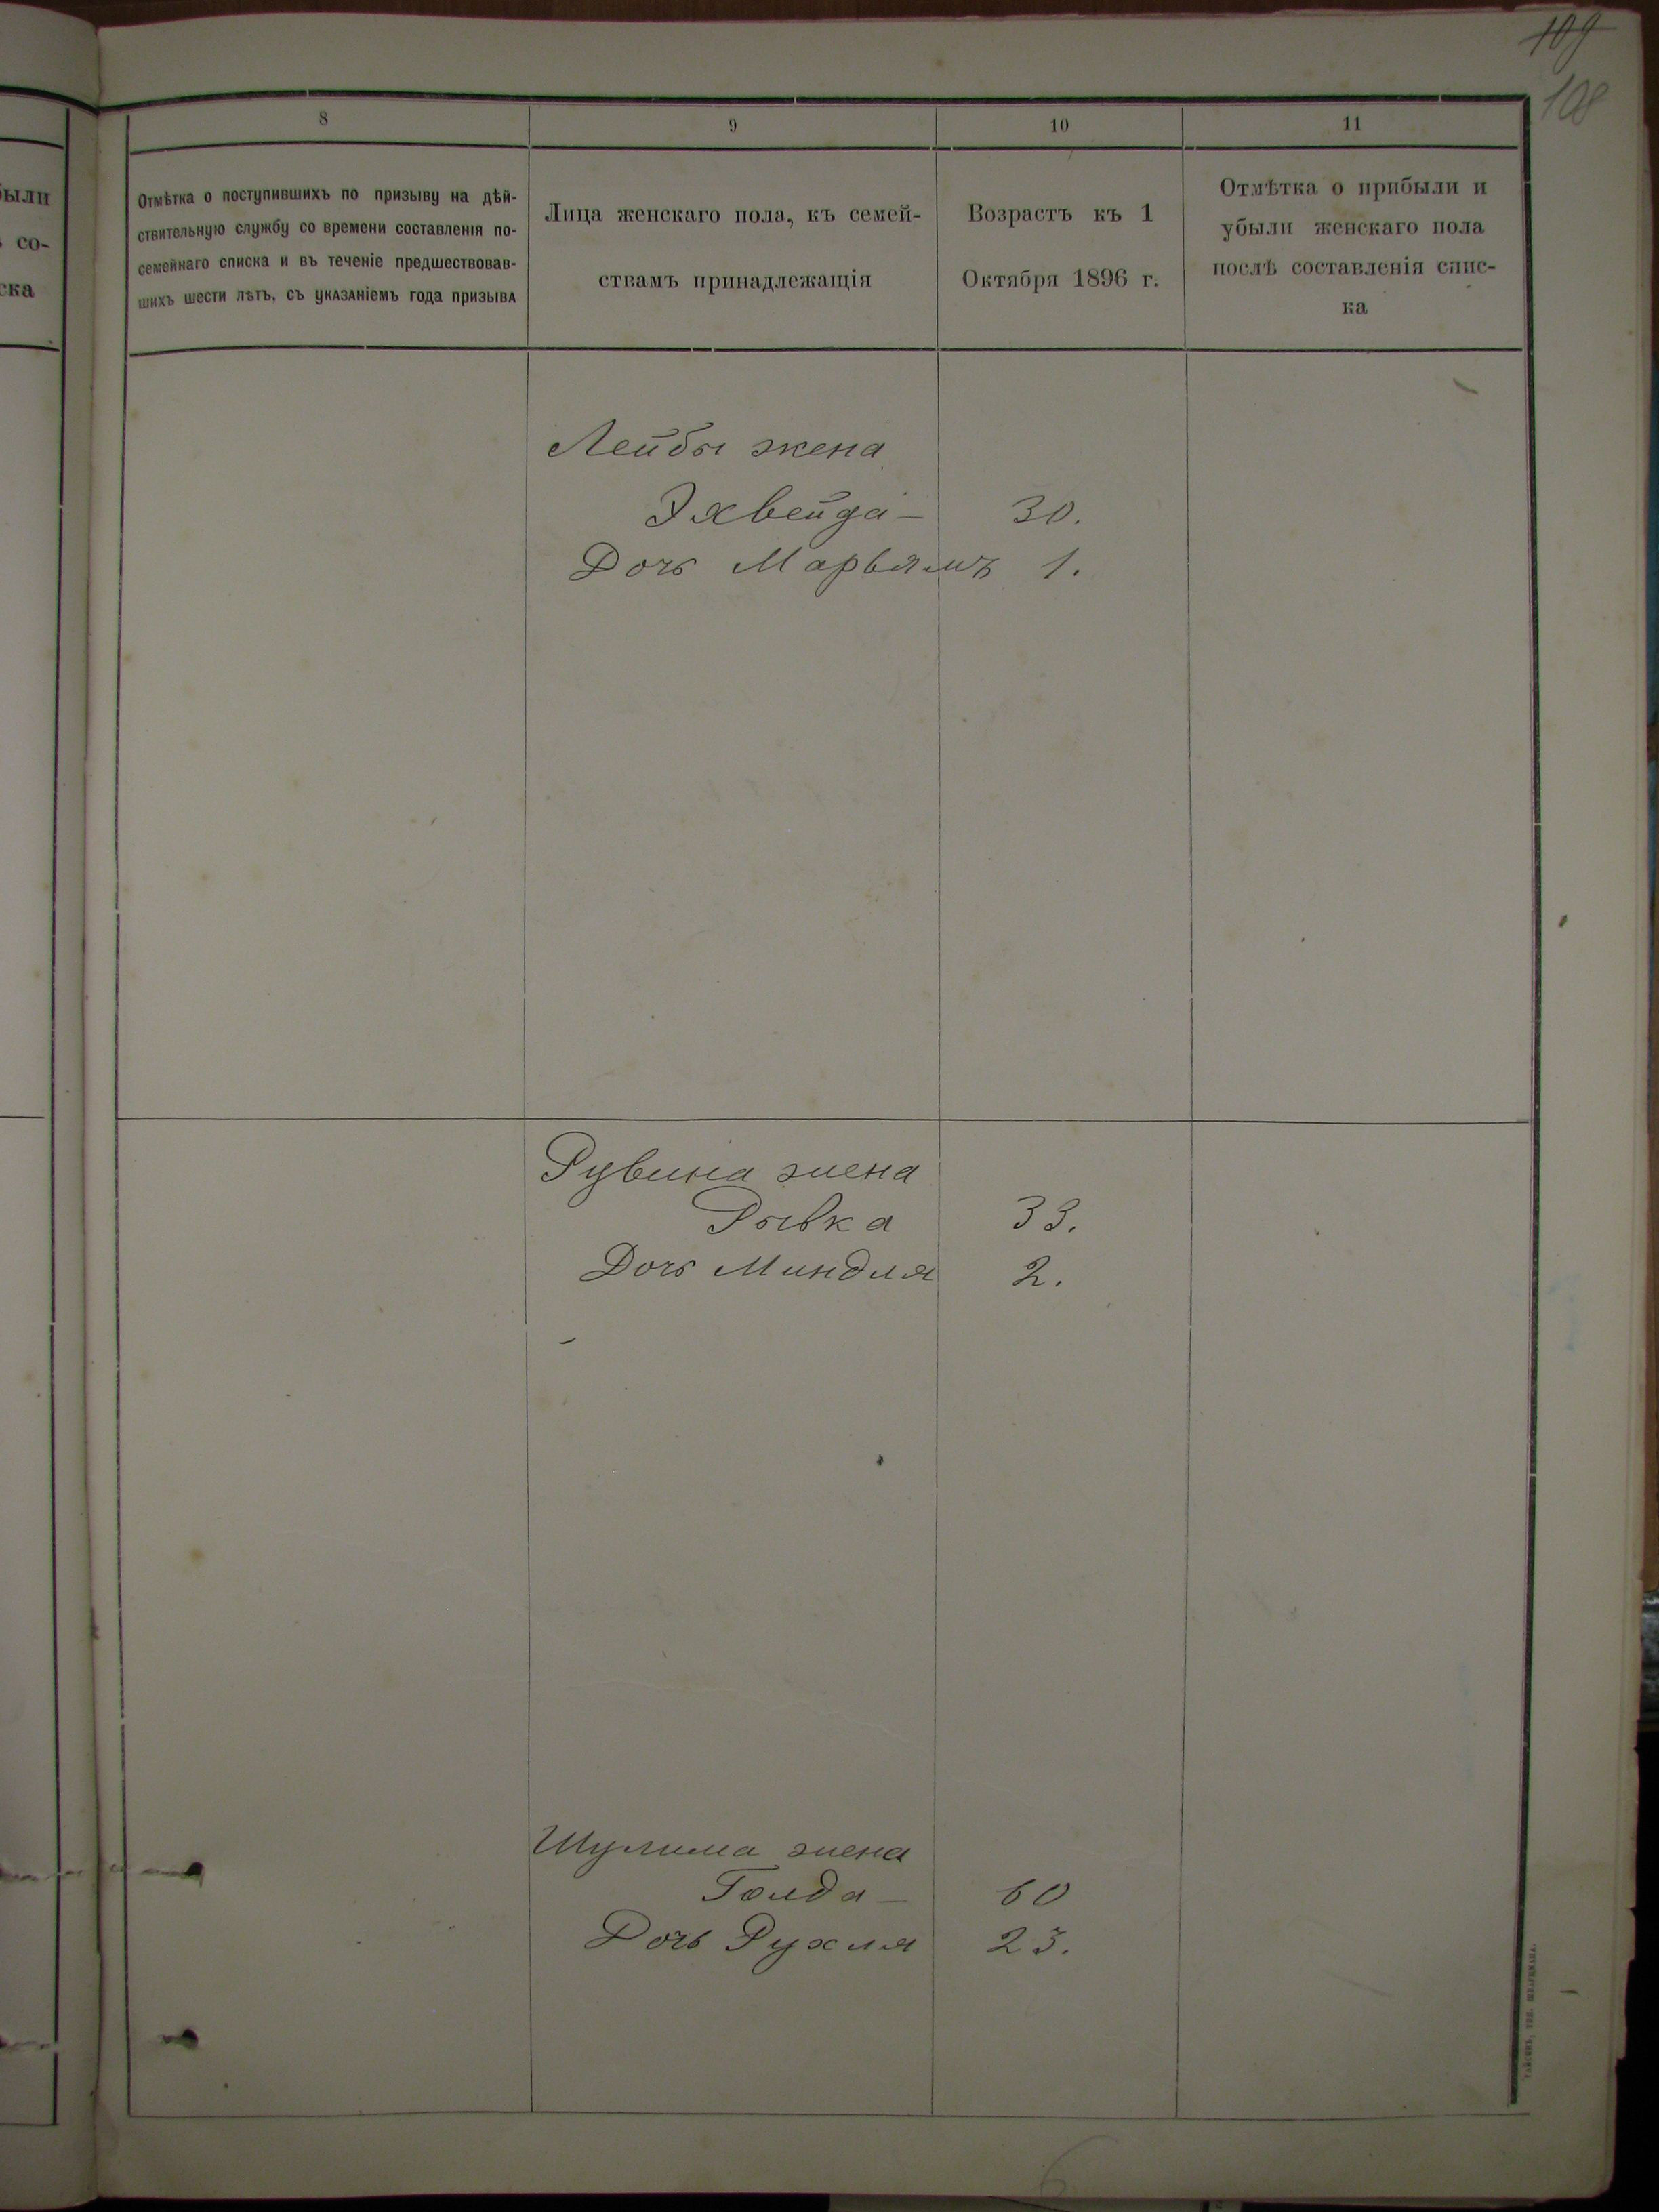 109
108
были
со-
ска
8
9
10
11
Отмѣтка о поступившихъ по призыву на дѣй-
ствительную службу со времени составленія по-
семейнаго списка и въ теченіе предшествовав-
шихъ шести лѣтъ, съ указаніемъ года призыва
Лица женскаго пола, къ семей-
ствамъ принадлежащія
Возрастъ къ 1
Октября 1896 г.
Отмѣтка о прибыли и
убыли женскаго пола
послѣ составленія спис-
ка
Лейбы жена
Эхвейда — 30.
Дочь Марьямъ 1.
Рувина жена
Рывка 33.
Дочь Миндля 2.
Шулима жена
Голда — 60
Дочь Рухля 23.